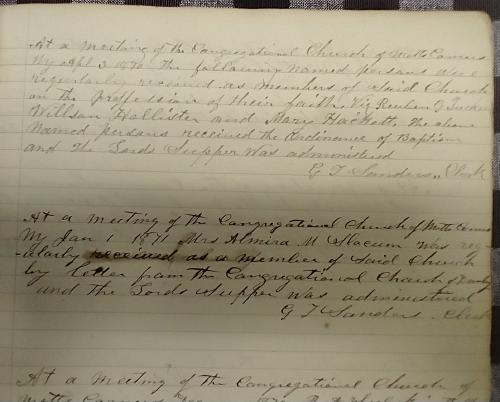 At a meeting of the Congregational Church of Metts Corners
Ny Apl 3 1870 the following Named persons were
regularly received as members of Said Church
on the proffession of their faith. Viz Reuben J Tucker
Willson Hollister and Mary Hackett. The above
Named persons received the Ordinence of Baptism
and The Lords Supper Was administered
G T Sanders Clerk
At a meeting of the Congregational Church of Metts Corners
Ny Jan 1 1871 Mrs Almira M Slocum was reg-
ularly received as a member of Said Church
by letter from the Congregational Church of
and the Lords Supper was administered
G T Sanders Clerk
At a meeting of the Congregational Church of
Metts Corners